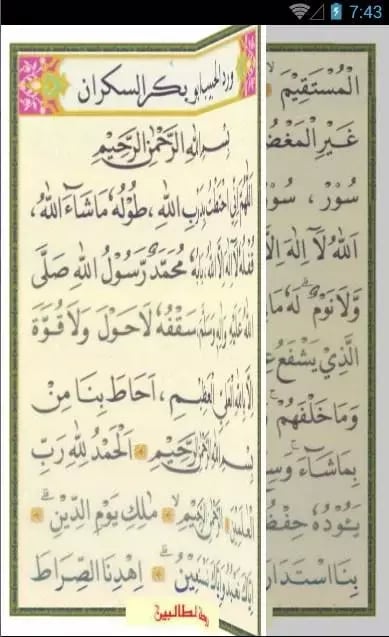 7:43
ورد الحبيب ابو بكر السكران
بِسْمِ اللهِ الرَّحْمٰنِ الرَّحِيْمِ
اَللّٰهُمَّ اِنِّى احْتَطْتُ بِدَرْبِ اللهِ ، طُوْلُهُ مَاشَآءَ اللهُ ،
قُفْلُهُ لَآاِلٰهَ اِلَّا اللهُ ، بَابُهُ مُحَمَّدٌ رَّسُوْلُ اللهِ صَلَّى
اللهُ عَلَيْهِ وَاٰلِهِ وَسَلَّمَ ، سَقْفُهُ لَاحَوْلَ وَلَا قُوَّةَ
اِلَّا بِاللهِ الْعَلِيِّ الْعَظِيْمِ ، اَحَاطَ بِنَا مِنْ
بِسْمِ اللهِ الرَّحْمٰنِ الرَّحِيْمِ اَلْحَمْدُ لِلّٰهِ رَبِّ
الْعٰلَمِيْنَ الرَّحْمٰنِ الرَّحِيْمِ مٰلِكِ يَوْمِ الدِّيْنِ
اِيَّاكَ نَعْبُدُ وَاِيَّاكَ نَسْتَعِيْنُ اِهْدِنَا الصِّرَاطَ
الْمُسْتَقِيْمَ
غَيْرِ الْمَغْضُ
سُوْرٌ ، سُوْ
اَللهُ لَآ اِلٰهَ اِلَّا
وَّلَا نَوْمٌ لَهُ مَا
الَّذِيْ يَشْفَعُ عِ
وَمَا خَلْفَهُمْ
بِمَاشَآءَ وَسِ
يَئُوْدُهُ حِفْظُ
بِنَا اسْتَدَارَ